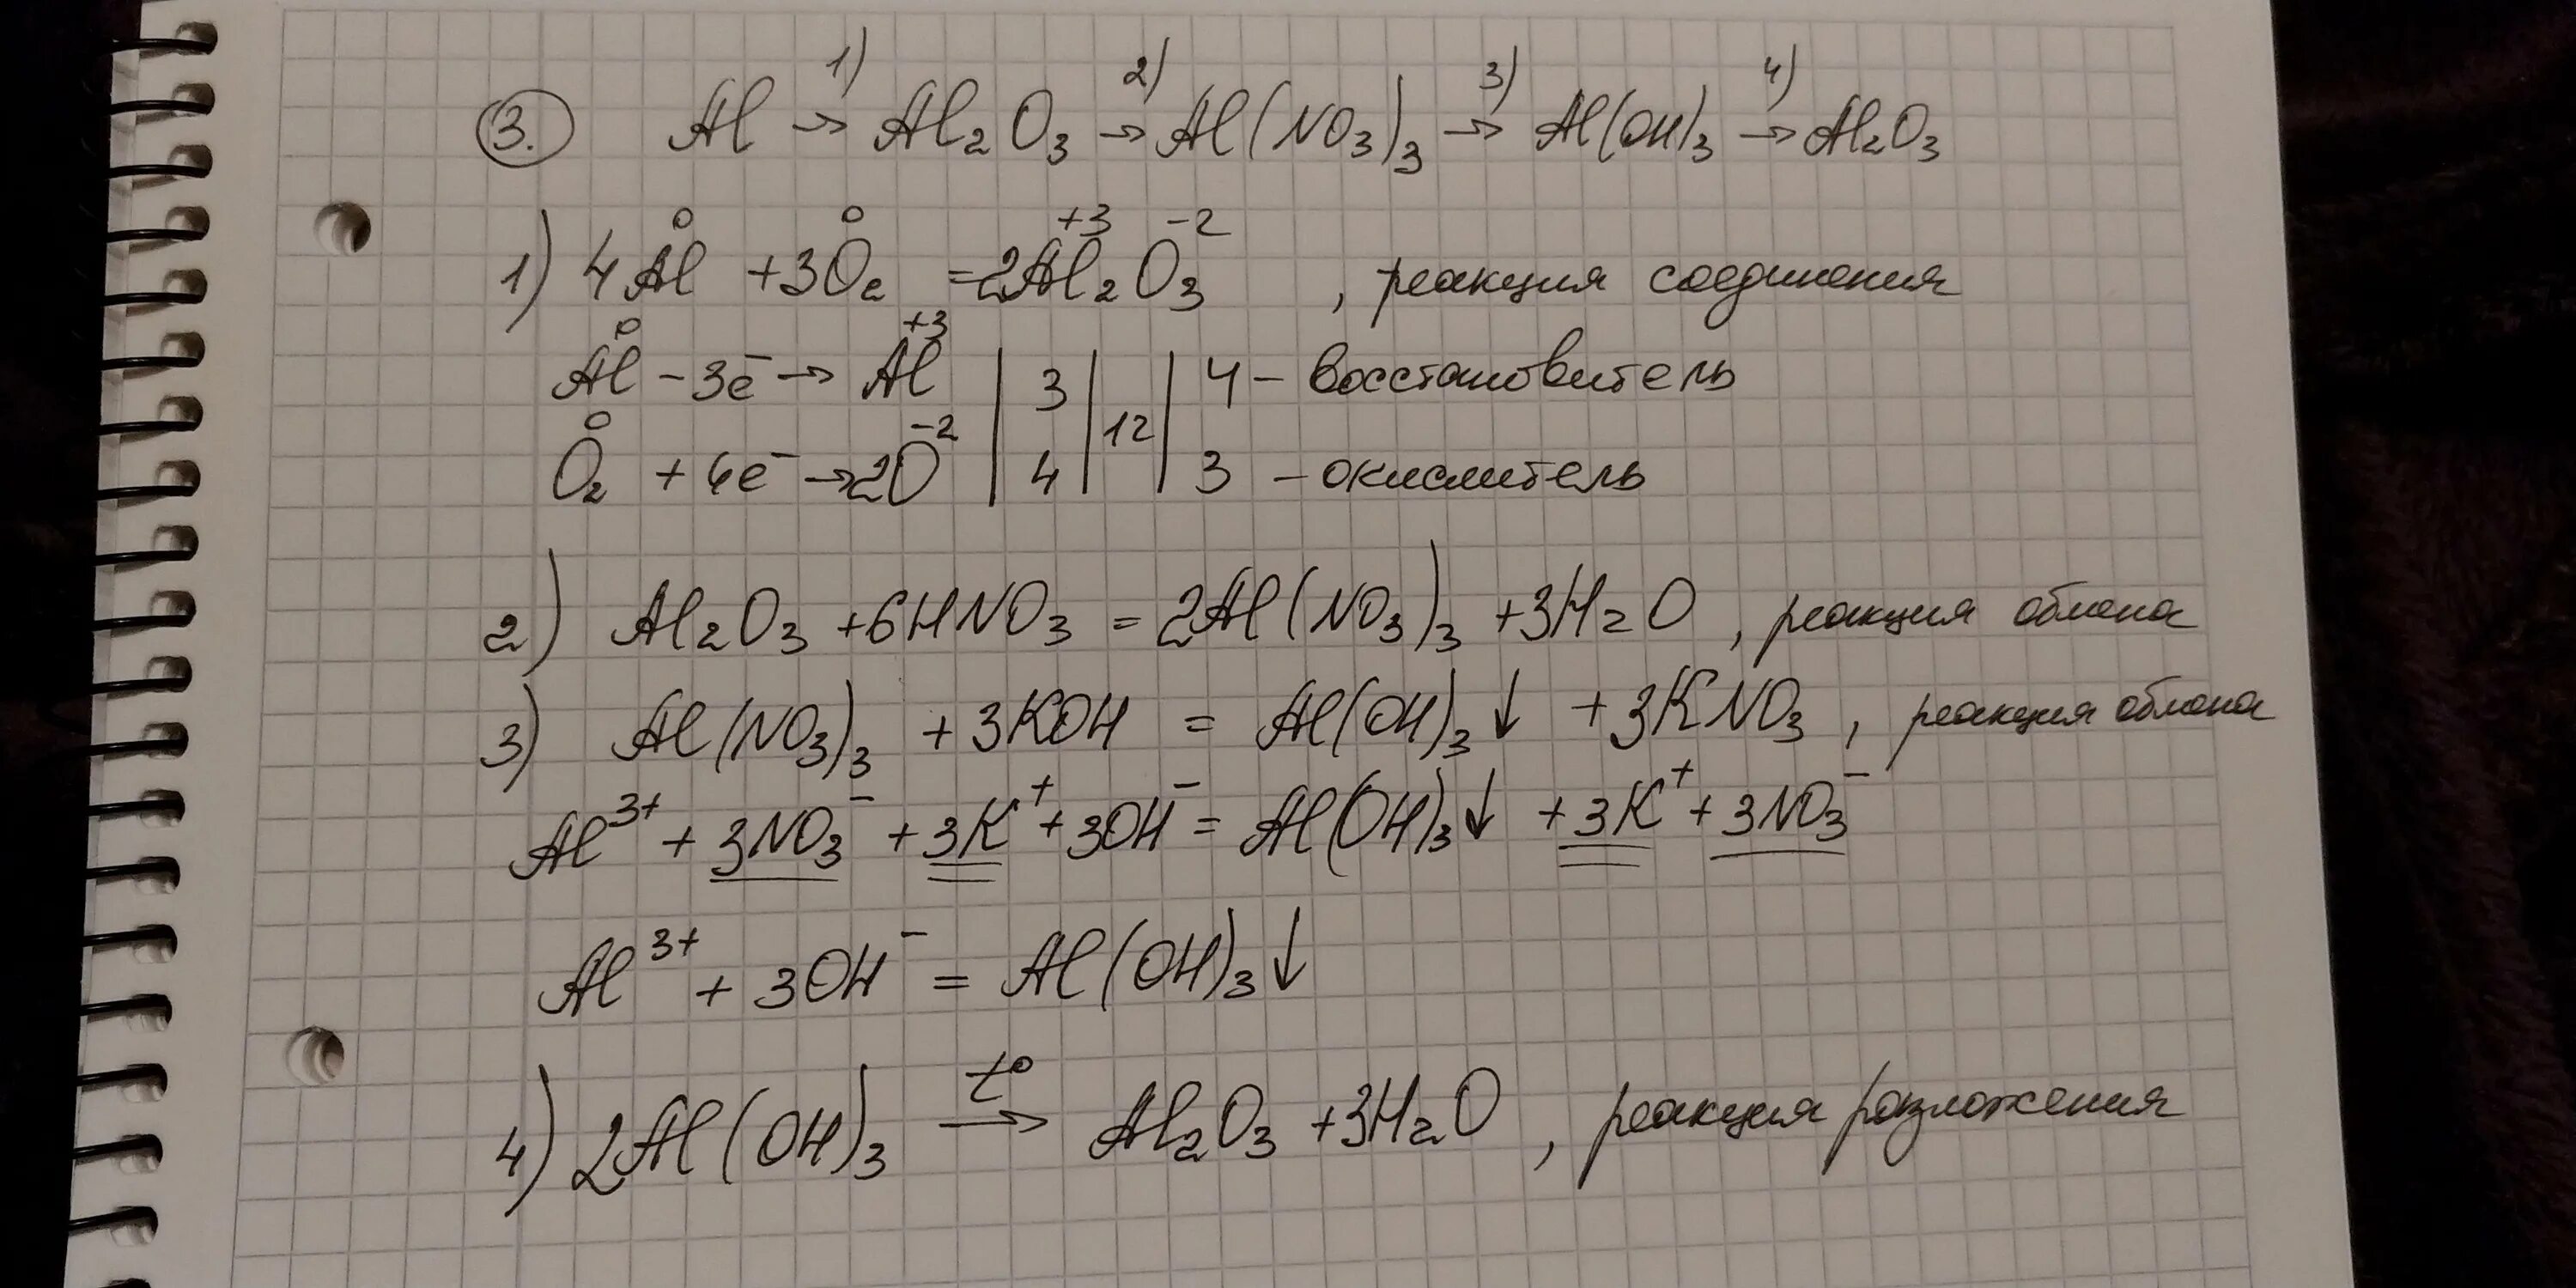 3. Al 1)→ Al₂O₃ 2)→ Al(NO₃)₃ 3)→ Al(OH)₃ 4)→ Al₂O₃
1) 4Al⁰ + 3O₂⁰ = 2Al₂⁺³O₃⁻², реакция соединения
Al⁰ – 3e⁻ → Al⁺³ | 3 | 12 | 4 – восстановитель
O₂⁰ + 4e⁻ → 2O⁻² | 4 | | 3 – окислитель
2) Al₂O₃ + 6HNO₃ = 2Al(NO₃)₃ + 3H₂O, реакция обмена
3) Al(NO₃)₃ + 3KOH = Al(OH)₃↓ + 3KNO₃, реакция обмена
Al³⁺ + 3NO₃⁻ + 3K⁺ + 3OH⁻ = Al(OH)₃↓ + 3K⁺ + 3NO₃⁻
Al³⁺ + 3OH⁻ = Al(OH)₃↓
4) 2Al(OH)₃ t°→ Al₂O₃ + 3H₂O, реакция разложения